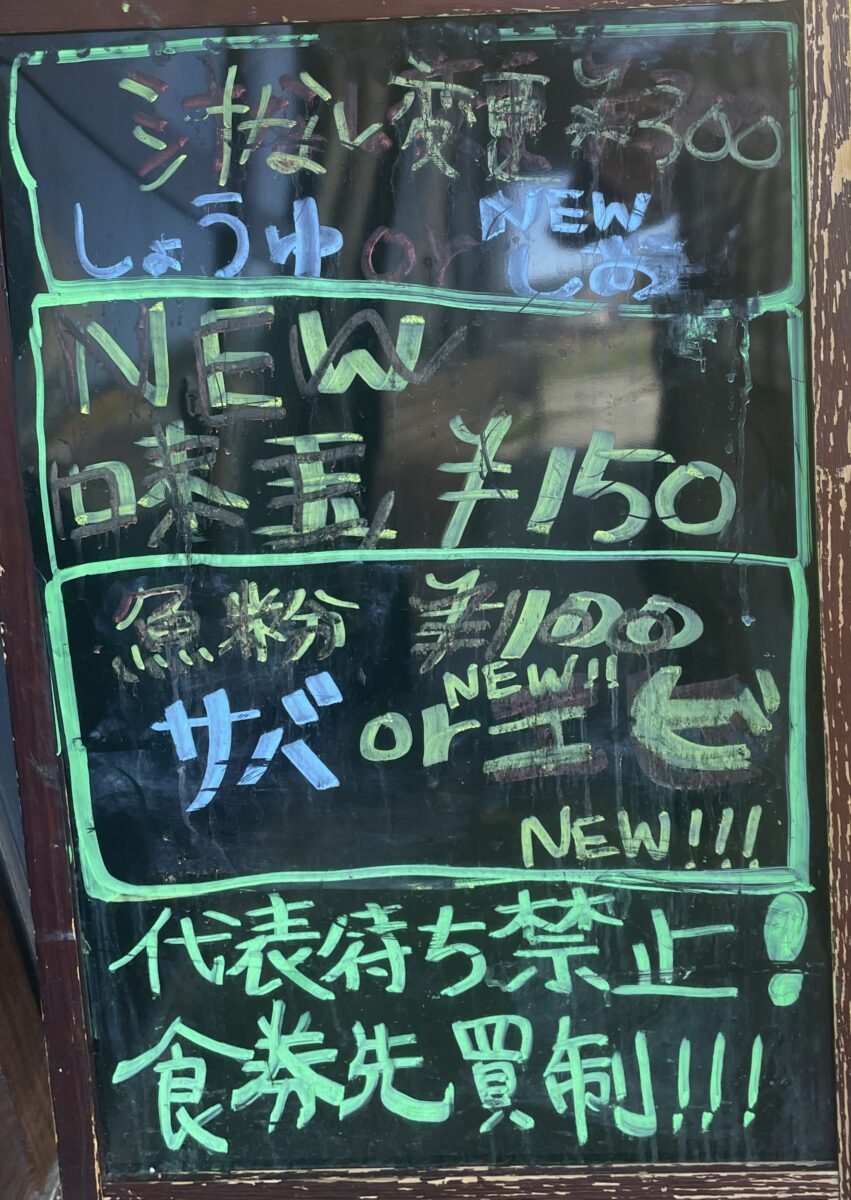 汁なし変更 ¥300
NEW
しょうゆ or しお
NEW
味玉 ¥150
魚粉 ¥100
NEW!!
サバ or エビ
NEW!!!
代表待ち禁止!
食券先買制!!!